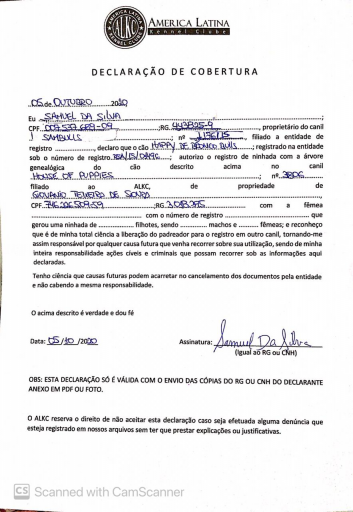 AMERICA LATINA
Kennel Clube
ALKC
DECLARAÇÃO DE COBERTURA
05 de OUTUBRO 2020
Eu SAMUEL DA SILVA
CPF RG , proprietário do canil
J SAMBULLS ; nº , filiado a entidade de
registro , declaro que o cão HAPPY DE BRONCO BULLS ; registrado na entidade
sob o número de registro ; autorizo o registro de ninhada com a árvore
genealógica do cão descrito acima no canil
HOUSE OF PUPPIES ; nº 3806
filiado ao ALKC, de propriedade de
GEOVANIO TEIXEIRO DE
CPF RG com a fêmea
com o número de registro que
gerou uma ninhada de filhotes, sendo machos e fêmeas; e reconheço
que é de minha total ciência a liberação do padreador para o registro em outro canil, tornando-me
assim responsável por qualquer causa futura que venha recorrer sobre sua utilização, sendo de minha
inteira responsabilidade ações cíveis e criminais que possam recorrer sob as informações aqui
declaradas.
Tenho ciência que causas futuras podem acarretar no cancelamento dos documentos pela entidade
e não cabendo a mesma responsabilidade.
O acima descrito é verdade e dou fé
Data: 05/10/2020 Assinatura: Samuel Da Silva
(Igual ao RG ou CNH)
OBS: ESTA DECLARAÇÃO SÓ É VÁLIDA COM O ENVIO DAS CÓPIAS DO RG OU CNH DO DECLARANTE
ANEXO EM PDF OU FOTO.
O ALKC reserva o direito de não aceitar esta declaração caso seja efetuada alguma denúncia que
esteja registrado em nossos arquivos sem ter que prestar explicações ou justificativas.
CS Scanned with CamScanner